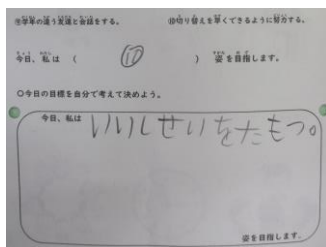 ⑨学年の違う友達と会話をする。 ⑩切り替えを早くできるように努力する。
今日、私は ( ⑩ ) 姿を目指します。
○今日の目標を自分で考えて決めよう。
今日、私は いいしせいをたもつ。
姿を目指します。